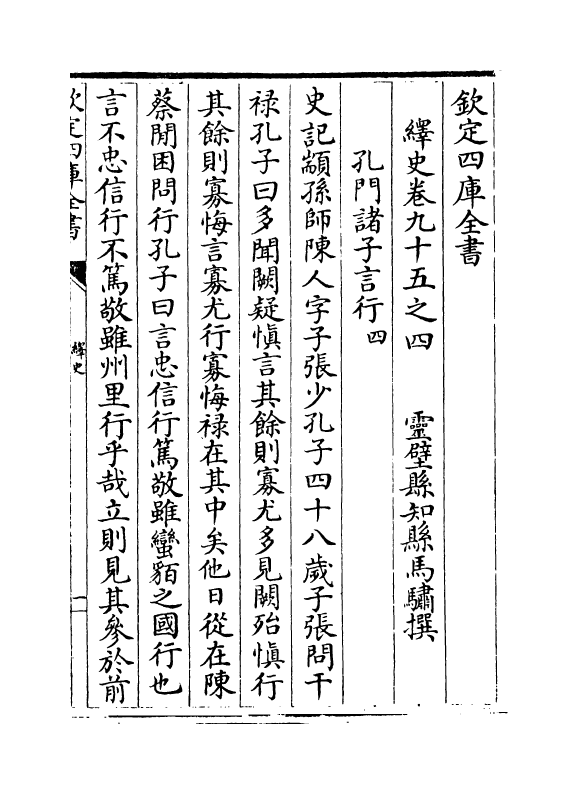 欽定四庫全書
繹史卷九十五之四　靈壁縣知縣馬驌撰
孔門諸子言行四
史記顓孫師陳人字子張少孔子四十八歲子張問干
祿孔子曰多聞闕疑慎言其餘則寡尤多見闕殆慎行
其餘則寡悔言寡尤行寡悔祿在其中矣他日從在陳
蔡閒困問行孔子曰言忠信行篤敬雖蠻貊之國行也
言不忠信行不篤敬雖州里行乎哉立則見其參於前
欽定四庫全書
繹史
一